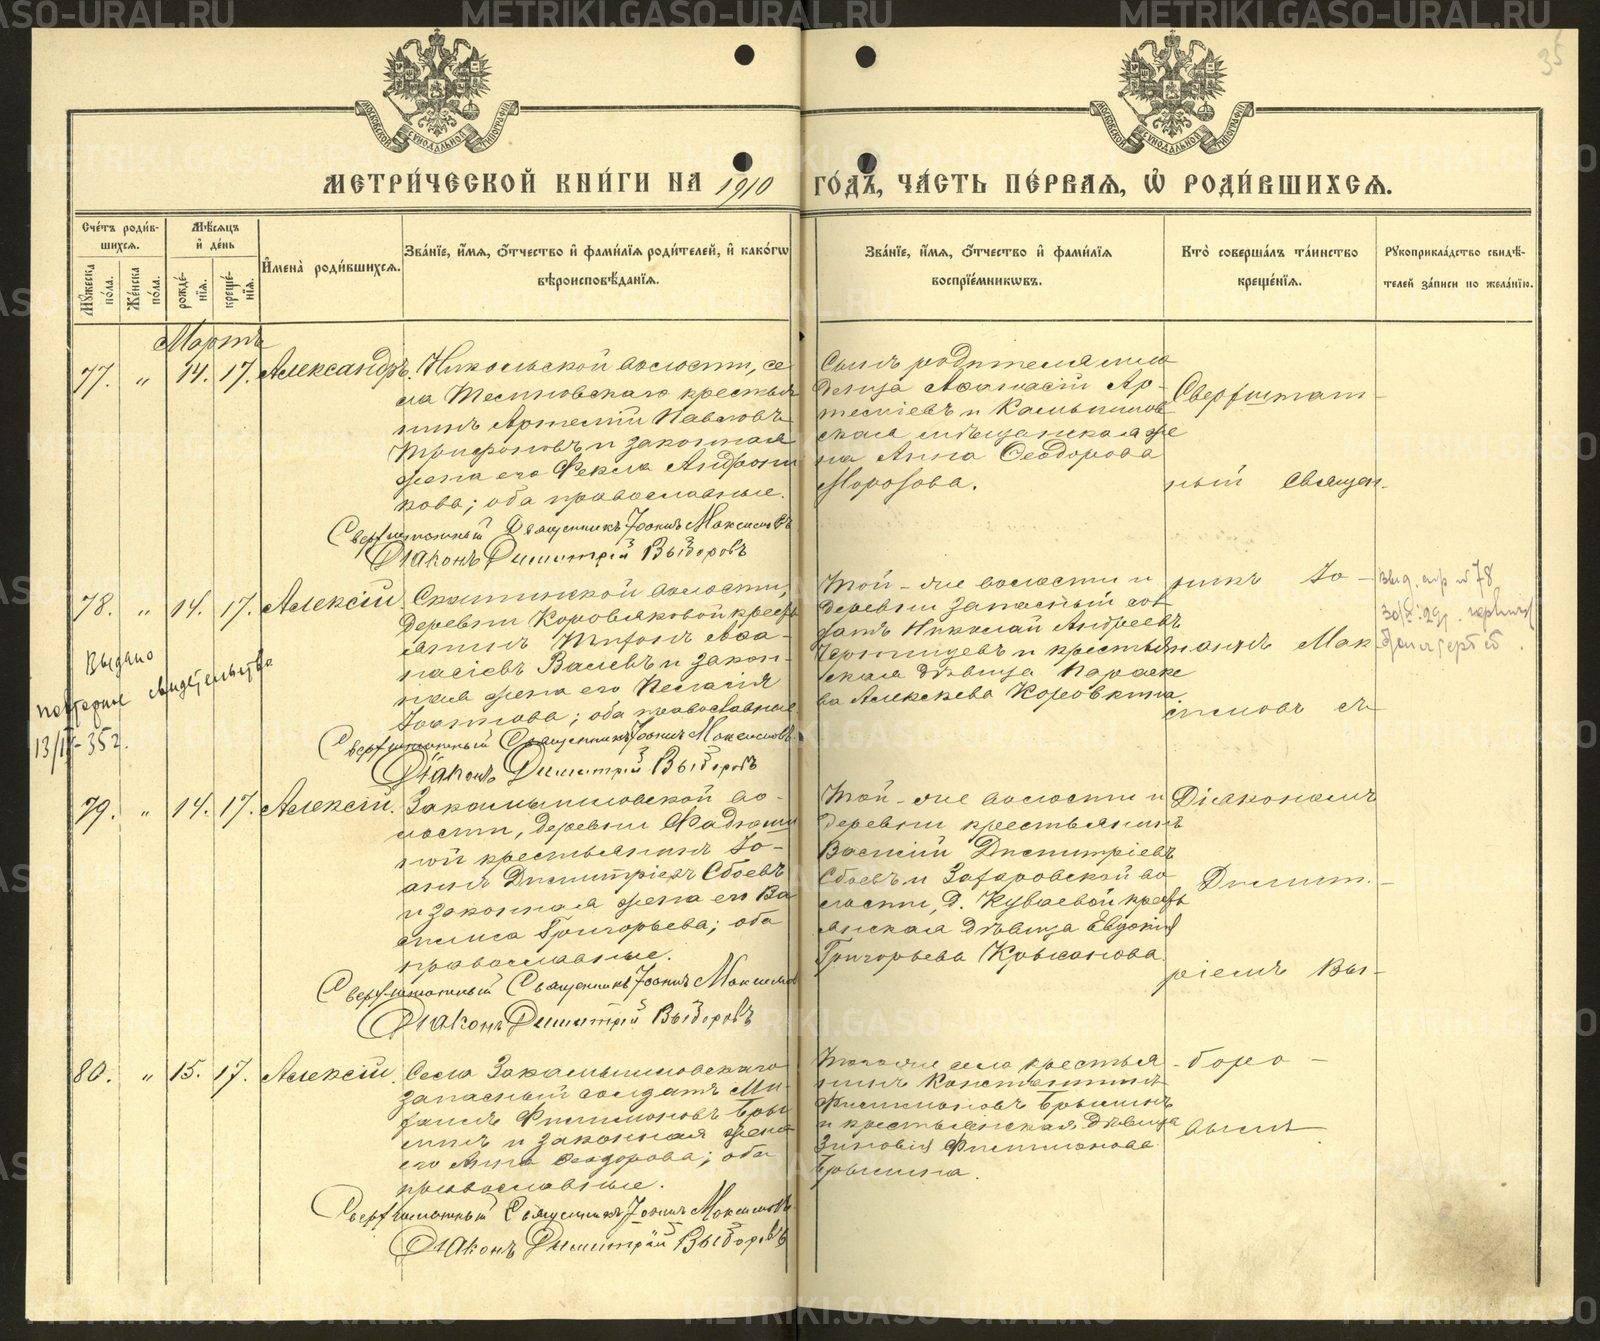 35
МОСКОВСКОЙ СѴНОДАЛЬНОЙ ТИПОГРАФІИ
МОСКОВСКОЙ СѴНОДАЛЬНОЙ ТИПОГРАФІИ
МЕТРИ́ЧЕСКОЙ КНИ́ГИ НА 1910 ГО́ДЪ, ЧА́СТЬ ПЕ́РВАѦ, Ѡ҆ РОДИ́ВШИХСѦ.
Сче́тъ роди́вшихсѧ.
Мꙋ́жеска по́ла.
Же́нска по́ла.
Мѣ́сѧцъ и҆ де́нь
рожде́нїѧ.
креще́нїѧ.
И҆мена̀ роди́вшихсѧ.
Зва́нїе, и҆́мѧ, ѻ҆́тчество и҆ фами́лїѧ роди́телей, и҆ како́гѡ
вѣроисповѣ́данїѧ.
Зва́нїе, и҆́мѧ, ѻ҆́тчество и҆ фами́лїѧ
воспрїе́мникѡвъ.
Кто̀ соверша́лъ та́инство
креще́нїѧ.
Рꙋкоприкла́дство свидѣ́-
телей за́писи по жела́нїю.
Мартъ
77. " 14. 17. Александръ.
Никольской волости, се
ла Тесиновскаго крестья
нинъ Артемій Павловъ
Трифоновъ и законная
жена его Фекла Андрони
кова; оба православные.
Сверхштатный Священникъ Іоаннъ Максимовъ
Діаконъ Димитрій Выборовъ
Сынъ родителя мла
денца Аѳанасій Ар-
теміевъ и Камышлов
ская мѣщанская же
на Анна Ѳеодорова
Морозова.
78. " 14. 17. Алексій
Скатинской волости,
деревни Коровяковой кресть
янинъ Тихонъ Аѳа-
насіевъ Валевъ и закон
ная жена его Пелагія
Іоаннова; оба православные
Сверхштатный Священникъ Іоаннъ Максимовъ
Діаконъ Димитрій Выборовъ
Той-же волости и
деревни запасный сол
датъ Николай Андреев
и крестьян
ская дѣвица Параске
ва Алексѣева Коровкина
Выдано
повторное свидетельство
13/IV-35 г.
79. " 14. 17. Алексій.
Закамышловской во-
лости, деревни Фадюши
ной крестьянинъ Іо-
аннъ Димитріевъ Сбоевъ
и законная жена его Ва
силиса Григорьева; оба
православные.
Сверхштатный Священникъ Іоаннъ Максимов
Діаконъ Димитрій Выборовъ
Той-же волости и
деревни крестьянинъ
Василій Димитріевъ
Сбоевъ и Захаровской во
лости, д. Куваевой кресть
янская дѣвица Евдокія
Григорьева Крысанова
80. " 15. 17. Алексій.
Села Закамышловскаго
запасный солдатъ Ми-
хаилъ Филимоновъ Бры
линъ и законная жена
его Анна Ѳеодорова; оба
православные.
Сверхштатный Священникъ Іоаннъ Максимовъ
Діаконъ Димитрій Выборовъ
Того-же села крестья
нинъ Константинъ
Филимоновъ Брылинъ
и крестьянская дѣвица
Зиновія Филимонова
Брылина.
Сверхштат-
ный священ-
никъ Іо-
аннъ Мак
симовъ съ
Діакономъ
Димит-
ріемъ Вы-
боро-
вымъ
METRIKI.GASO-URAL.RU